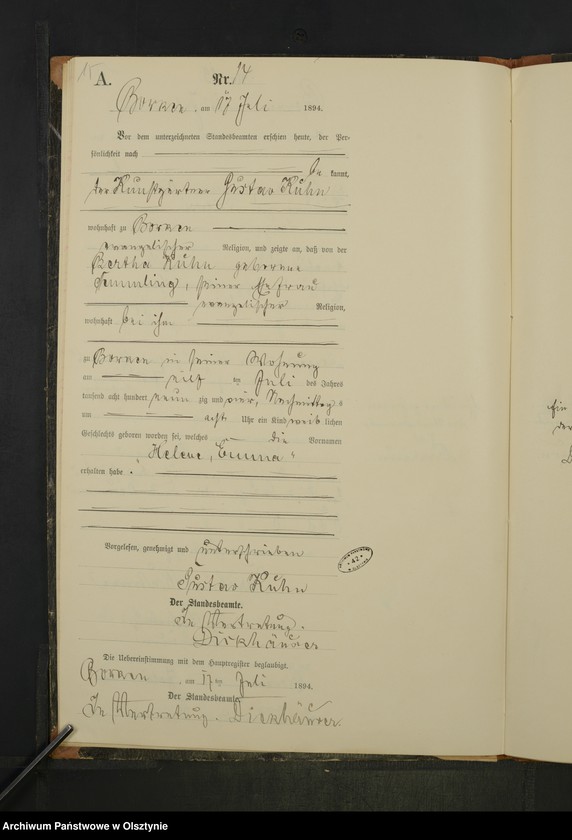 15
A.
Nr. 14
am 17 Juli 1894.
Vor dem unterzeichneten Standesbeamten erschien heute, der Per-
sönlichkeit nach
kannt,
der Kunstgärtner Gustav Kühn
wohnhaft zu
evangelischer Religion, und zeigte an, daß von der
Bertha Kühn geborene
Temmling, seiner Ehefrau
evangelischer Religion,
wohnhaft bei ihm
zu in seiner Wohnung
am elf ten Juli des Jahres
tausend acht hundert neun zig und vier, Nachmittags
um acht Uhr ein Kind weib lichen
Geschlechts geboren worden sei, welches die Vornamen
„Helene, Emma“
erhalten habe.
Vorgelesen, genehmigt und unterschrieben
Gustav Kühn
Der Standesbeamte.
In Vertretung.
Die Uebereinstimmung mit dem Hauptregister beglaubigt.
am 17ten Juli 1894.
Der Standesbeamte.
In Vertretung.
42
Archiwum Państwowe w Olsztynie